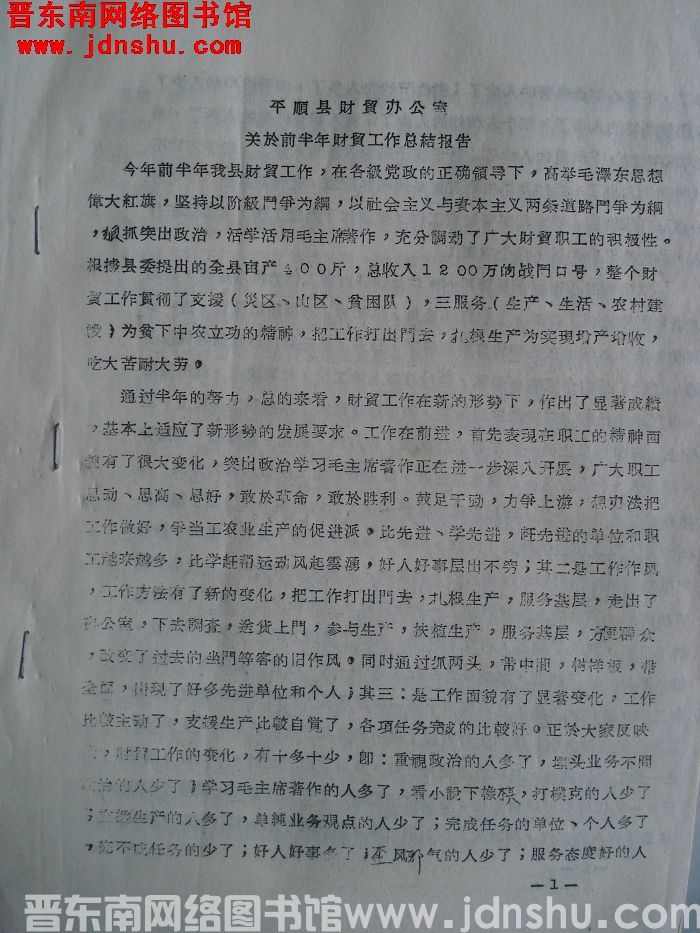 晋东南网络图书馆
www.jdnshu.com
平順县財貿办公室
关於前半年財貿工作总結报告
今年前半年我县財貿工作，在各級党政的正确領导下，高举毛澤东思想
偉大紅旗，坚持以阶級鬥爭为綱，以社会主义与資本主义两条道路鬥爭为綱
，狠抓突出政治，活学活用毛主席著作，充分調动了广大財貿职工的积极性。
根据县委提出的全县亩产400斤，总收入1200万的战鬥口号，整个財
貿工作貫彻了支援（災区、山区、貧困队），三服务（生产、生活、农村建
设）为貧下中农立功的精神，把工作打出門去，扎根生产为实現增产增收，
吃大苦耐大劳。
通过半年的努力，总的来看，財貿工作在新的形勢下，作出了显著成績
，基本上适应了新形势的发展要求。工作在前进，首先表現在职工的精神面
貌有了很大变化，突出政治学习毛主席著作正在进一步深入开展，广大职工
思动、思高、思好，敢於革命，敢於胜利。鼓足干勁，力爭上游，想办法把
工作做好，爭当工农业生产的促进派。比先进、学先进，赶先进的单位和职
工越来越多，比学赶帮运动风起雲湧，好人好事层出不穷；其二是工作作风
，工作方法有了新的变化，把工作打出門去，扎根生产，服务基层，走出了
办公室，下去調查，送貨上門，参与生产，扶植生产，服务基层，方便群众
，改变了过去的坐門等客的旧作风。同时通过抓两头，带中間，树样板，带
全面，出現了好多先进单位和个人；其三：是工作面貌有了显著变化，工作
比較主动了，支援生产比較自覚了，各項任务完成的比較好。正於大家反映
，財貿工作的变化，有十多十少，卽：重視政治的人多了，埋头业务不問
政治的人少了；学习毛主席著作的人多了，看小說下橡棋，打樸克的人少了
；支援生产的人多了，单純业务观点的人少了；完成任务的单位、个人多了
，完不成任务的少了；好人好事多了；歪风邪气的人少了；服务态度好的人
—1—
晋东南网络图书馆 www.jdnshu.com